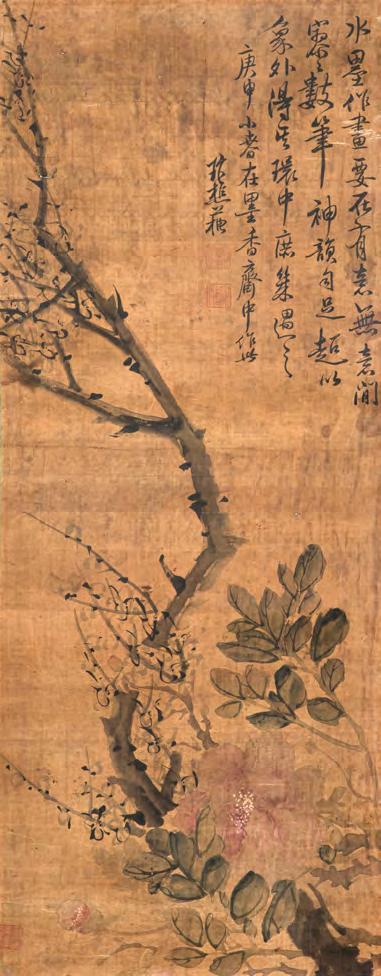 水墨作畫要在有意無意間
寥寥數筆神韻自足超以
象外得其環中庶幾遇之
庚申小春在墨香齋中作此
樵蘓